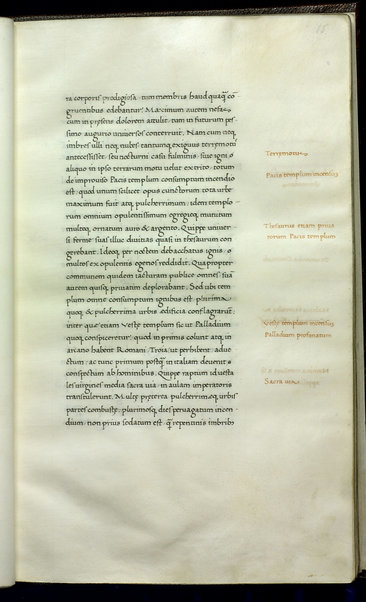 ra corporis prodigiosa. tum membris haud quaq̃ cõ
gruentibus edebantur. Maximum autem nefas,
cum in presens dolorem attulit, tum in futurum pes
simo augurio universos conterruit. Nam cum neq,
imbres ulli neq, nubes, tantumq, exiguus terrymotus
antecessisset, seu nocturni casu fulminis, sive igni
aliquo in ipso terrarum motu velut excrito, totum
de improviso Pacis templum consumptum incendio
est. quod unum scilicet opus cunctorum tota urbe
maximum fuit atq, pulcherrimum. idem templo
rum omnium opulentissimum egregieq, munitum
multoq, ornatum auro & argento. Quippe univer
si ferme suas illuc divitias quasi in thesaurum con
gerebant. Ideoq, per noctem debacchatus ignis
multos ex opulentis egenos reddidit. Quapropter
communem quidem iacturam publice omnes, suã
autem quisq, privatim deplorabant. Sed ubi tem
plum omne consumptum ignibus est, plurima
quoq, & pulcherrima urbis edificia conflagrarunt.
inter que etiam Veste templum, sic ut Palladium
quoq, conspiceretur. quod in primis colunt atq, in
arcano habent Romani, Troia ut perhibent advec
tum, ac tunc primum postq̃ in italiam devenit
conspectum ab hominibus. Quippe raptum id vesta
les virgines media sacra via in aulam imperatoris
transtulerunt. Multe preterea pulcherrimeq, urbis
partes combuste, plurimosq, dies pervagatum incen
dium, non prius sedatum est q̃ repentinis imbrib
Terrymotus
Pacis templum incensus
Thesaurus etiam priva
torum Pacis templum
Veste templum incensus
Palladium profanatum
Sacra via